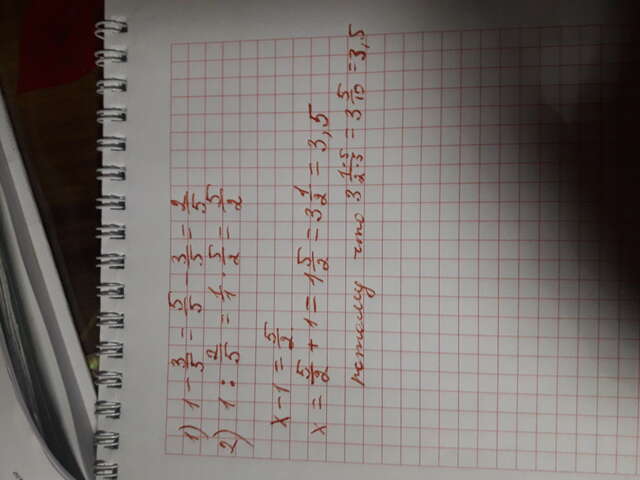 1) 1 - 3/5 = 5/5 - 3/5 = 2/5
2) 1 : 2/5 = 1/1 · 5/2 = 5/2
x - 1 = 5/2
x = 5/2 + 1 = 1 5/2 = 3 1/2 = 3,5
потому что 3 1·5/2·5 = 3 5/10 = 3,5